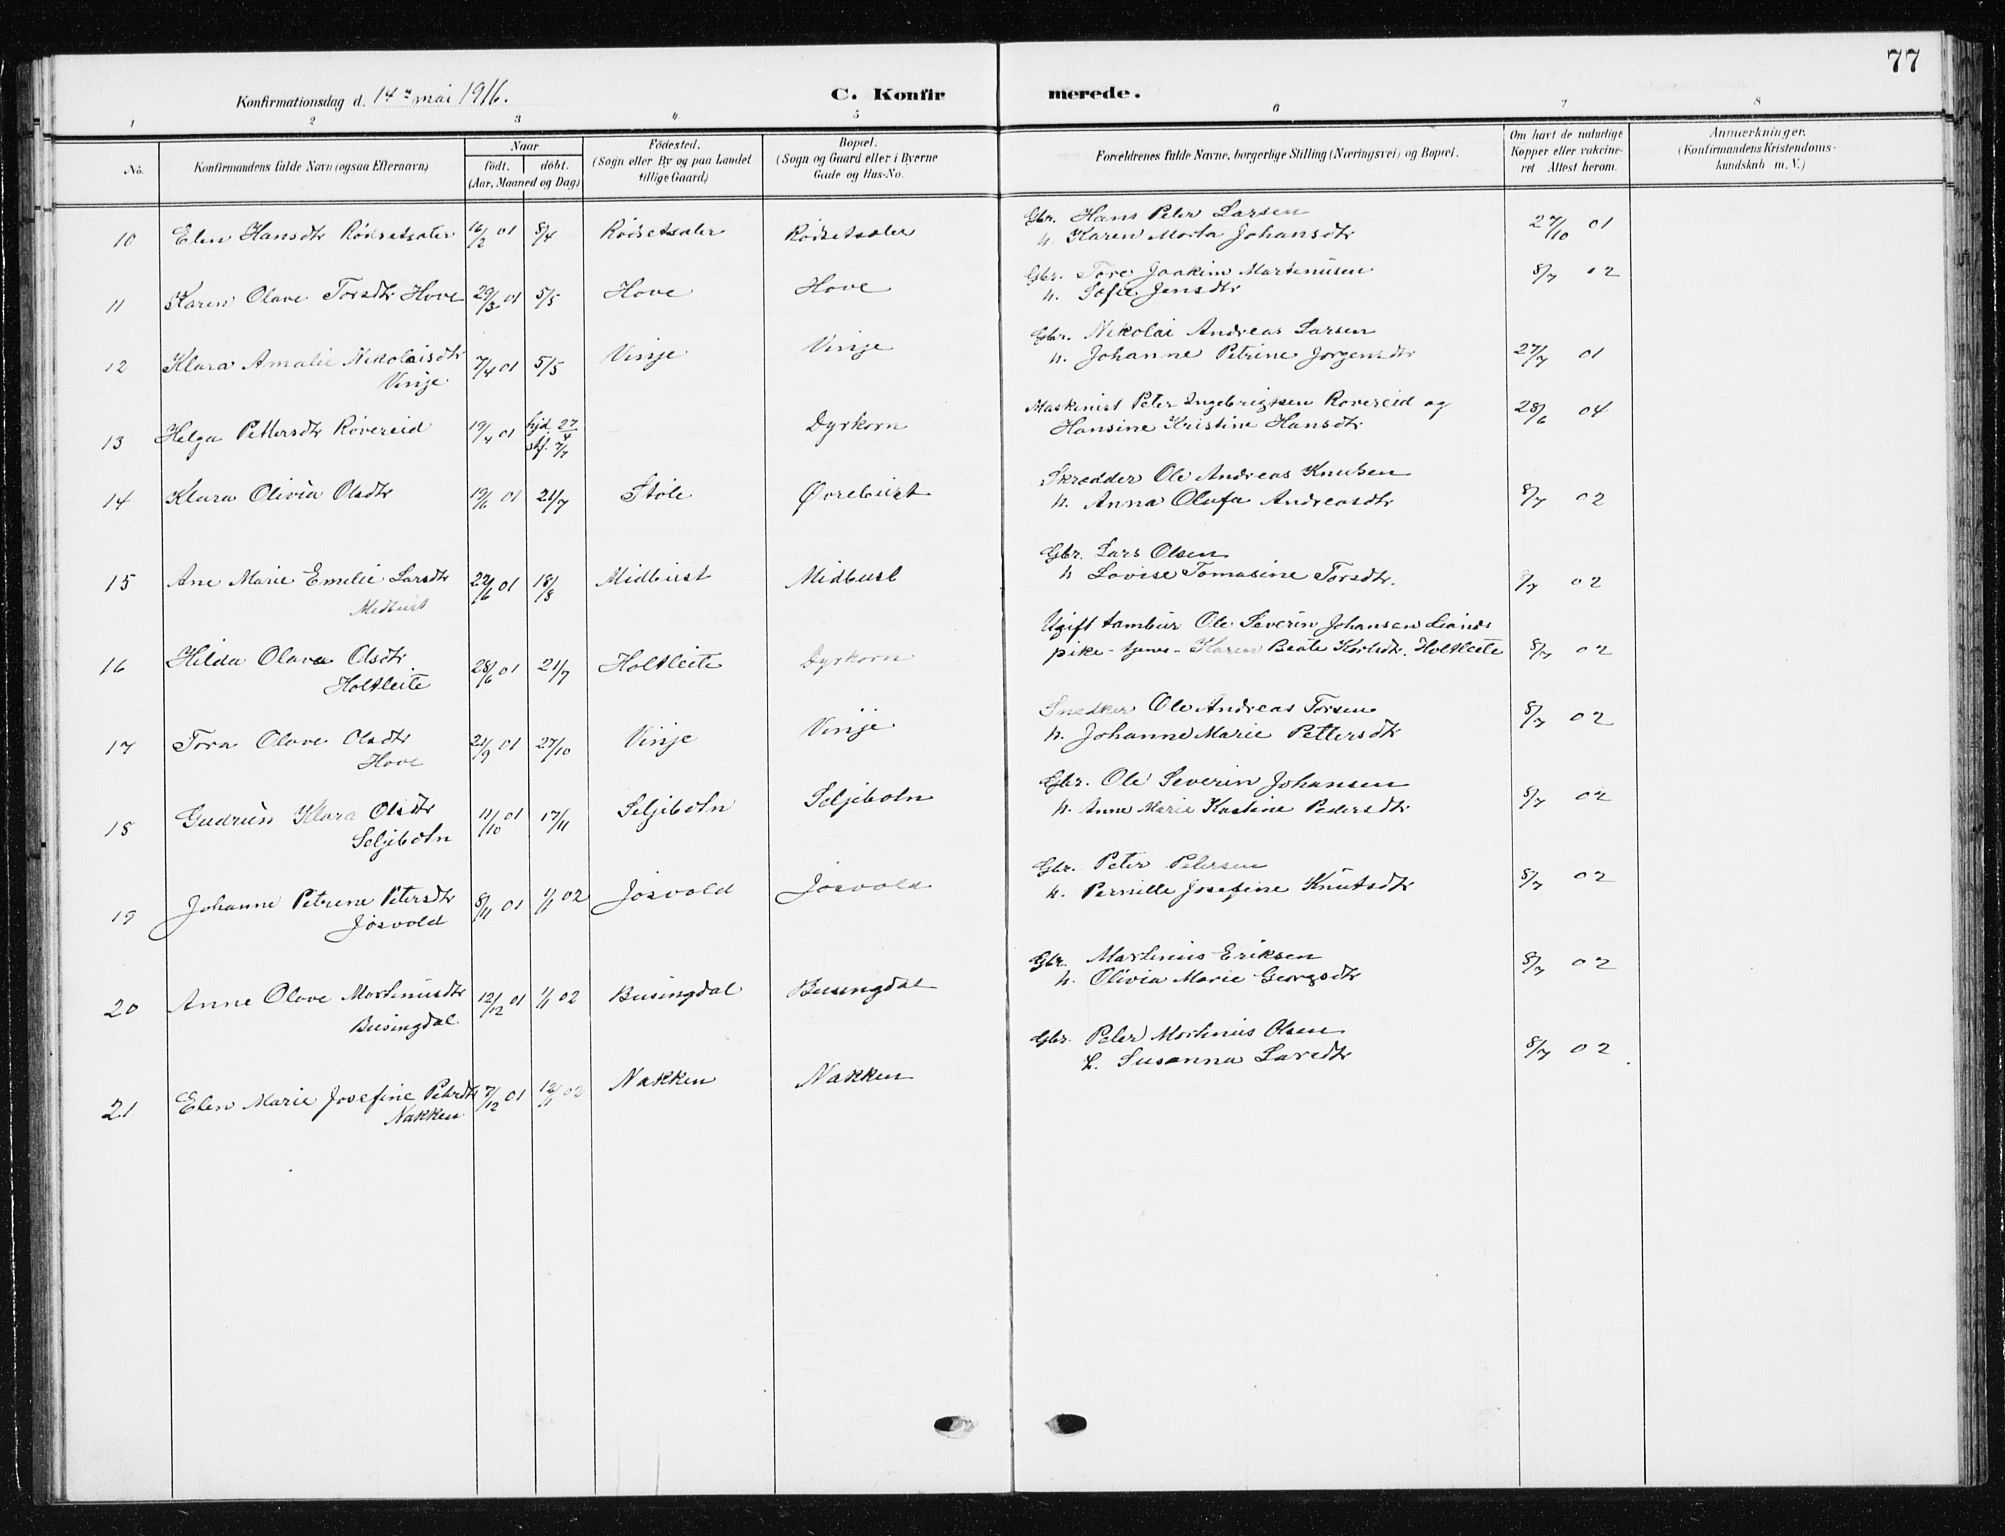 77
Konfirmationsdag d. 14de mai 1916.
C. Konfir merede.
1 2 3 4 5 6 7 8
No.
Konfirmandens fulde Navn (ogsaa Efternavn)
Naar
født. døbt.
(Aar, Maaned og Dag)
Fødested.
(Sogn eller By og paa Landet
tillige Gaard)
Bopæl.
(Sogn og Gaard eller i Byerne
Gade og Hus-No.
Forældrenes fulde Navne, borgerlige Stilling (Næringsvei) og Bopæl.
Om havt de naturlige
Kopper eller vakcine-
ret Attest herom.
Anmærkninger.
(Konfirmandens Kristendoms-
kundskab m. V.)
Gbr. Hans Peter Larsen
10 Elen Hansdtr Rødsetsæter 16/2 01 8/4 Rødsetsæter Rødsetsæter h. Karen Marta Johansdtr 27/10 01
Gbr. Tore Joakim Martinusen
11 Karen Olave Torsdtr Hove 29/3 01 5/5 Hove Hove h. Sofie Jensdtr 8/7 02
Gbr. Nikolai Andreas Larsen
12 Klara Amalie Nikolaisdtr 7/4 01 5/5 Vinje Vinje h. Johanne Petrine Jørgensdtr 27/7 01
Vinje
Maskinist Peter Ingebrigtsen Rovereid og
13 Helga Pettersdtr Røvereid 19/4 01 hjd. 27/4 Dyrkorn Hansine Kristine Hansdtr 28/6 04
stf. 7/7
Skrædder Ole Andreas Knutsen
14 Klara Olivia Olsdtr 19/6 01 21/7 Støle Ørebust h. Anna Olufa Andreasdtr 8/7 02
Gbr. Lars Olsen
15 Ane Marie Emelie Larsdtr 22/6 01 18/8 Midbust Midbust h Lovise Tomasine Torsdtr. 8/7 02
Midbust
Ugift tambur Ole Severin Johansen Liands
16 Hilda Olava Olsdtr. 28/6 01 21/7 Holtleite Dyrkorn pike - tjenes - Karen Beate Karlsdtr. Holtleite 8/7 02
Holtleite
Snedker Ole Andreas Torsen
17 Tora Olave Olsdtr 21/9 01 27/10 Vinje Vinje h. Johanne Marie Pettersdtr 8/7 02
Hove
Gbr. Ole Severin Johansen
18 Gudrun Klara Olsdtr 11/10 01 17/11 Seljebotn Seljebotn h. Anne Marie Kastine Pedersdtr 8/7 02
Seljebotn
Gbr. Peter Petersen
19 Johanne Petrine Petersdtr 8/11 01 1/1 02 Jøsvold Jøsvold h. Pernille Josefine Knutsdtr 8/7 02
Jøsvold
Gbr. Martinus Eriksen
20 Anne Olave Martinusdtr 12/12 01 1/1 02 Busingdal Busingdal h. Olivia Marie Georgsdtr 8/7 02
Busingdal
Gbr. Peter Martinus Olsen
21 Elen Marie Josefine Petersdtr 7/12 01 12/1 02 Nakken Nakken h. Susanna Larsdtr 8/7 02
Nakken